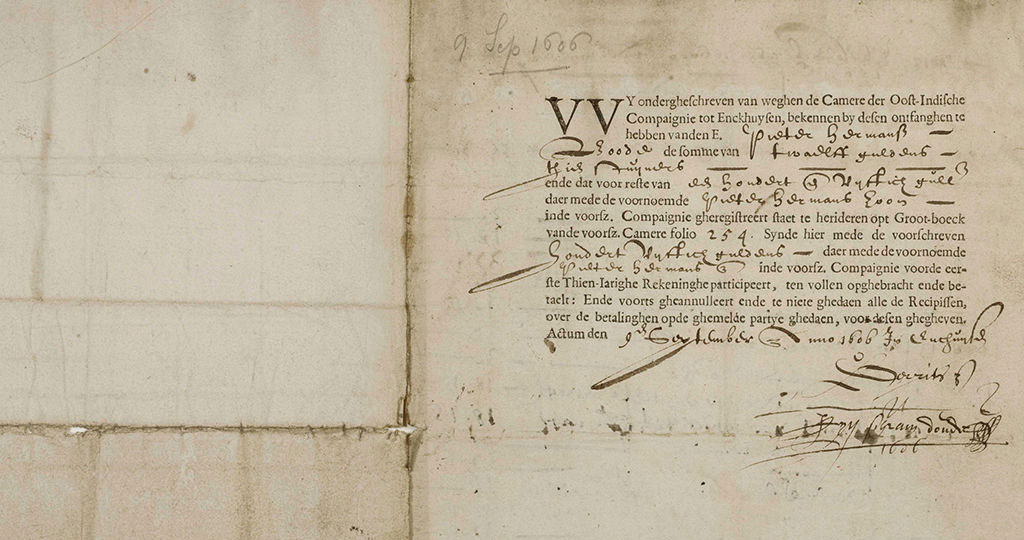 9 Sep 1606
VVY ondergheschreven van weghen de Camere der Oost-Indische
Compaignie tot Enckhuysen, bekennen by desen ontfanghen te
hebben vanden E. Pieter hermansz
de somme van twaelff guldens
thien stuijvers
ende dat voor reste van een hondert vijftich gull
daer mede de voornoemde Pieter hermans
inde voorsz. Compaignie gheregistreert staet te herideren opt Groot-boeck
vande voorsz. Camere folio 254. Synde hier mede de voorschreven
hondert vijftich guldens daer mede de voornoemde
Pieter hermans inde voorsz. Compaignie voorde eer-
ste Thien-Iarighe Rekeninghe participeert, ten vollen opghebracht ende be-
taelt: Ende voorts gheannulleert ende te niete ghedaen alle de Recipissen,
over de betalinghen opde ghemelde partye ghedaen, voor desen ghegheven.
Actum den 9en September Anno 1606 In Enchuysen
1606